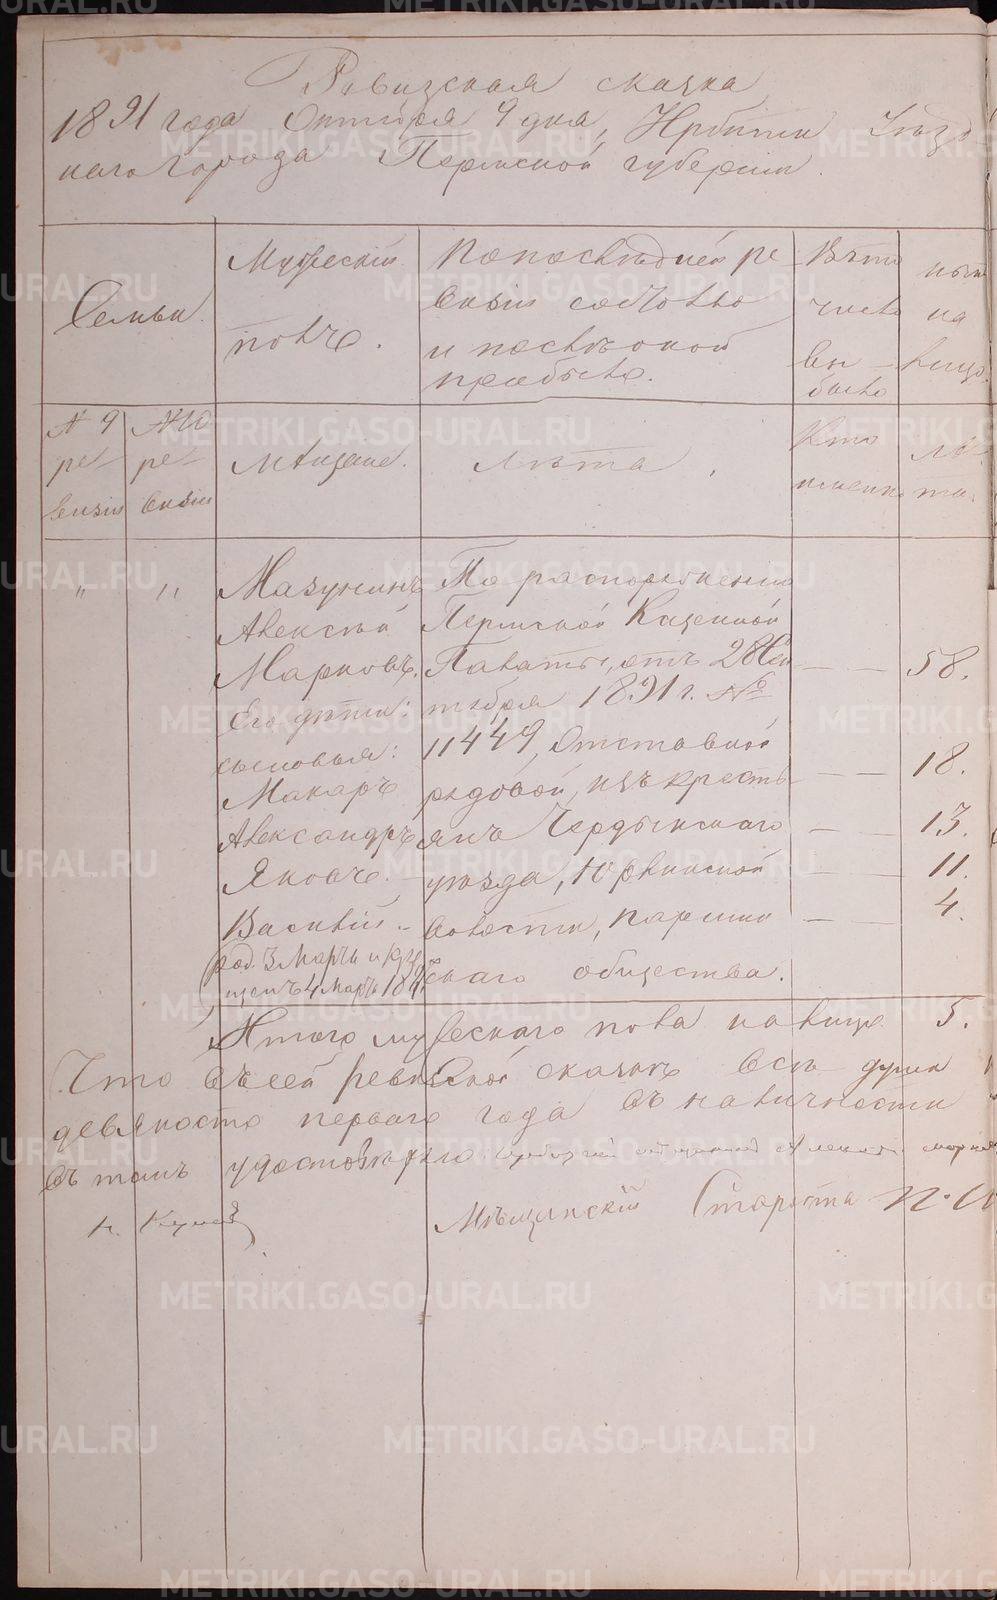 Ревизская сказка
1891 года Октября 9 дня, Ирбити Уезд
наго города Пермской губернiи.
Семьи.
Мужескiй
полъ.
По последней ре
визiи состояло
и после оной
прибыло.
Въ то
число
вы-
было
ныне
на
лицо.
№ 9
ре-
визiи
№ 10
ре-
визiи
Мещане.
Лета.
Кто
именно
ле-
та.
" "
Мазунинъ
Алексей
Марковъ.
Его дети:
сыновья:
Макаръ
Александръ
Яковъ.
Василiй.
род. 3 Марта и кре
щенъ 4 Марта 18
По распоряженiю
Пермской Казенной
Палаты, отъ 28 Сен
тября 1891 г. №
11449, Отставной
рядовой, изъ кресть
янъ Чердынскаго
уезда, Юрлинской
волости,
скаго общества.
— — 58.
— — 18.
— — 13.
— — 11.
— — 4.
Итого мужескаго пола на лице 5.
Что въ сей ревизской сказке все души
девяносто перваго года въ наличности
въ томъ удостоверяю Алексей
Мещанскiй Староста П.
METRIKI.GASO-URAL.RU